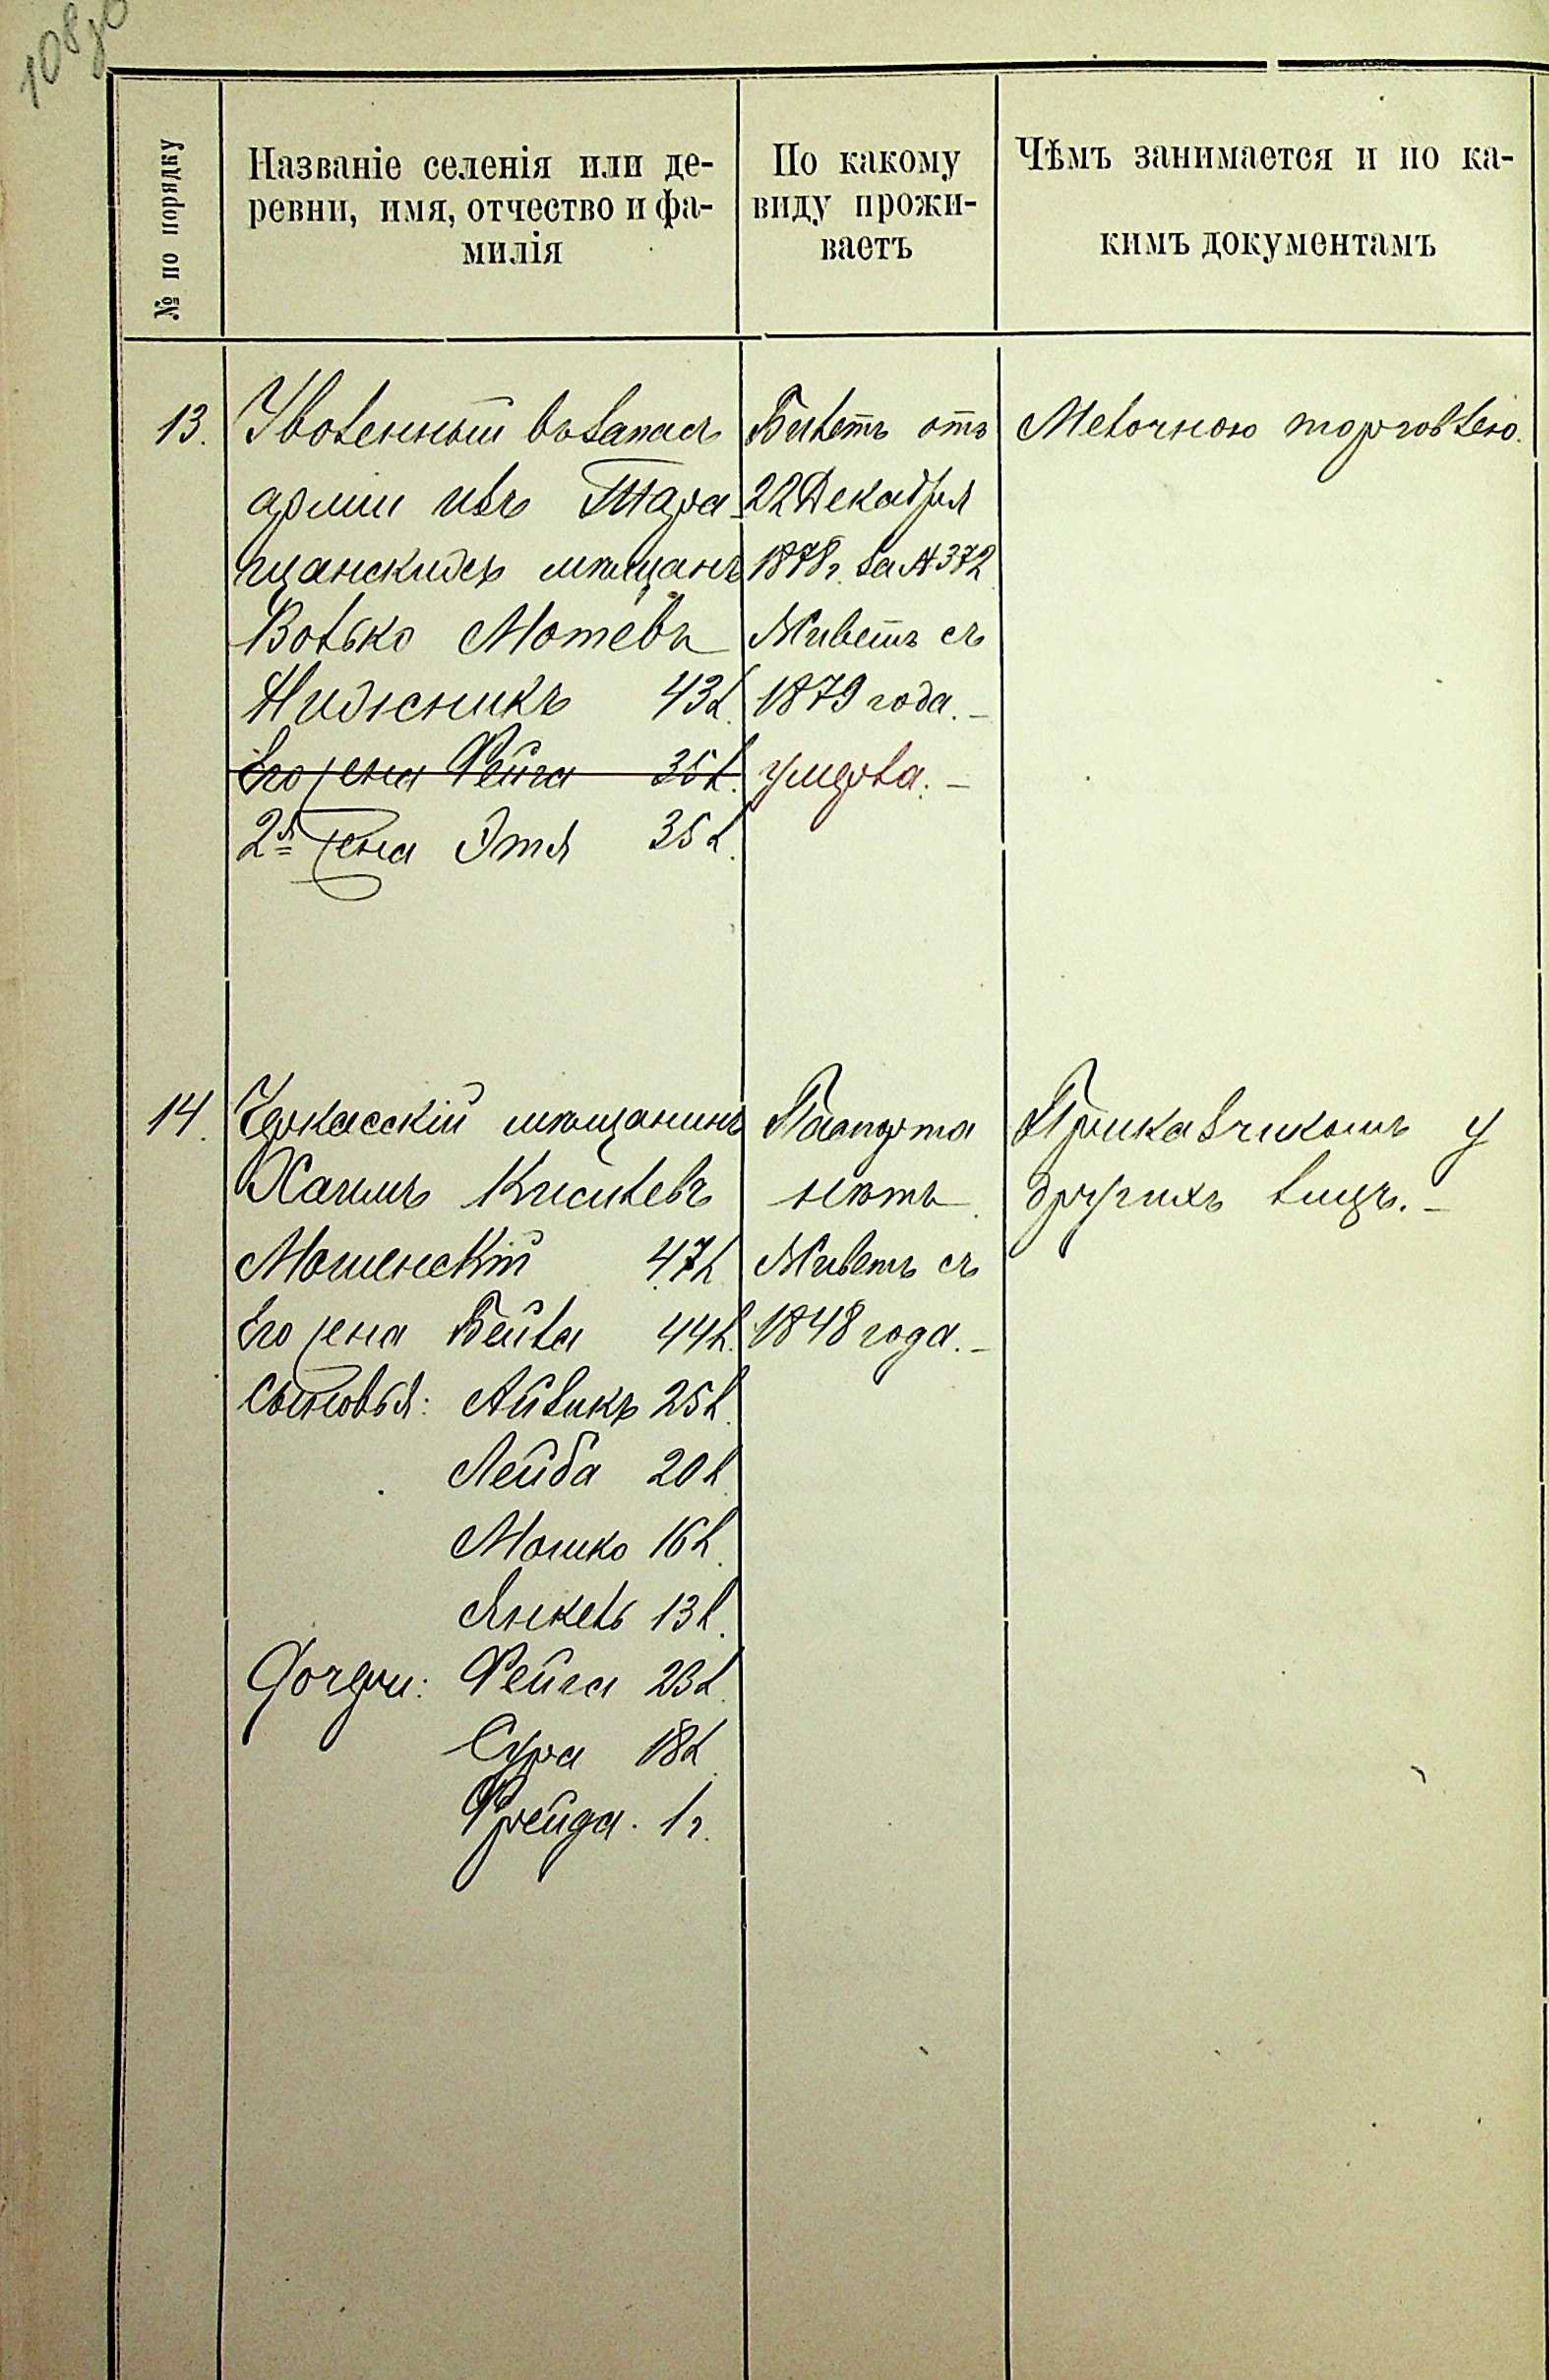 108об
№ по порядку
Названіе селенія или де-
ревни, имя, отчество и фа-
милія
По какому
виду прожи-
ваетъ
Чѣмъ занимается и по ка-
кимъ документамъ
13.
Уволенный въ запасъ
арміи изъ Тара-
щанскихъ мѣщанъ
Волько Мотевъ
43 л.
Его жена Фейга 35 л.
2я жена Этя 35 л.
Билетъ отъ
22 Декабря
1878 г. за № 372
Живетъ съ
1879 года. –
умерла. –
Мелочною торговлею.
14.
Черкасскій мѣщанинъ
Хаимъ Кисилевъ
Мошенскій 47 л.
Его жена Бейла 44 л.
Сыновья: Айзикъ 25 л.
Лейба 20 л.
Мошко 16 л.
Янкель 13 л.
Дочери: Фейга 23 л.
Сура 18 л.
Фрейда. 1 г.
Паспорта
нѣтъ.
Живетъ съ
1848 года. –
Приказчикомъ у
другихъ лицъ. –